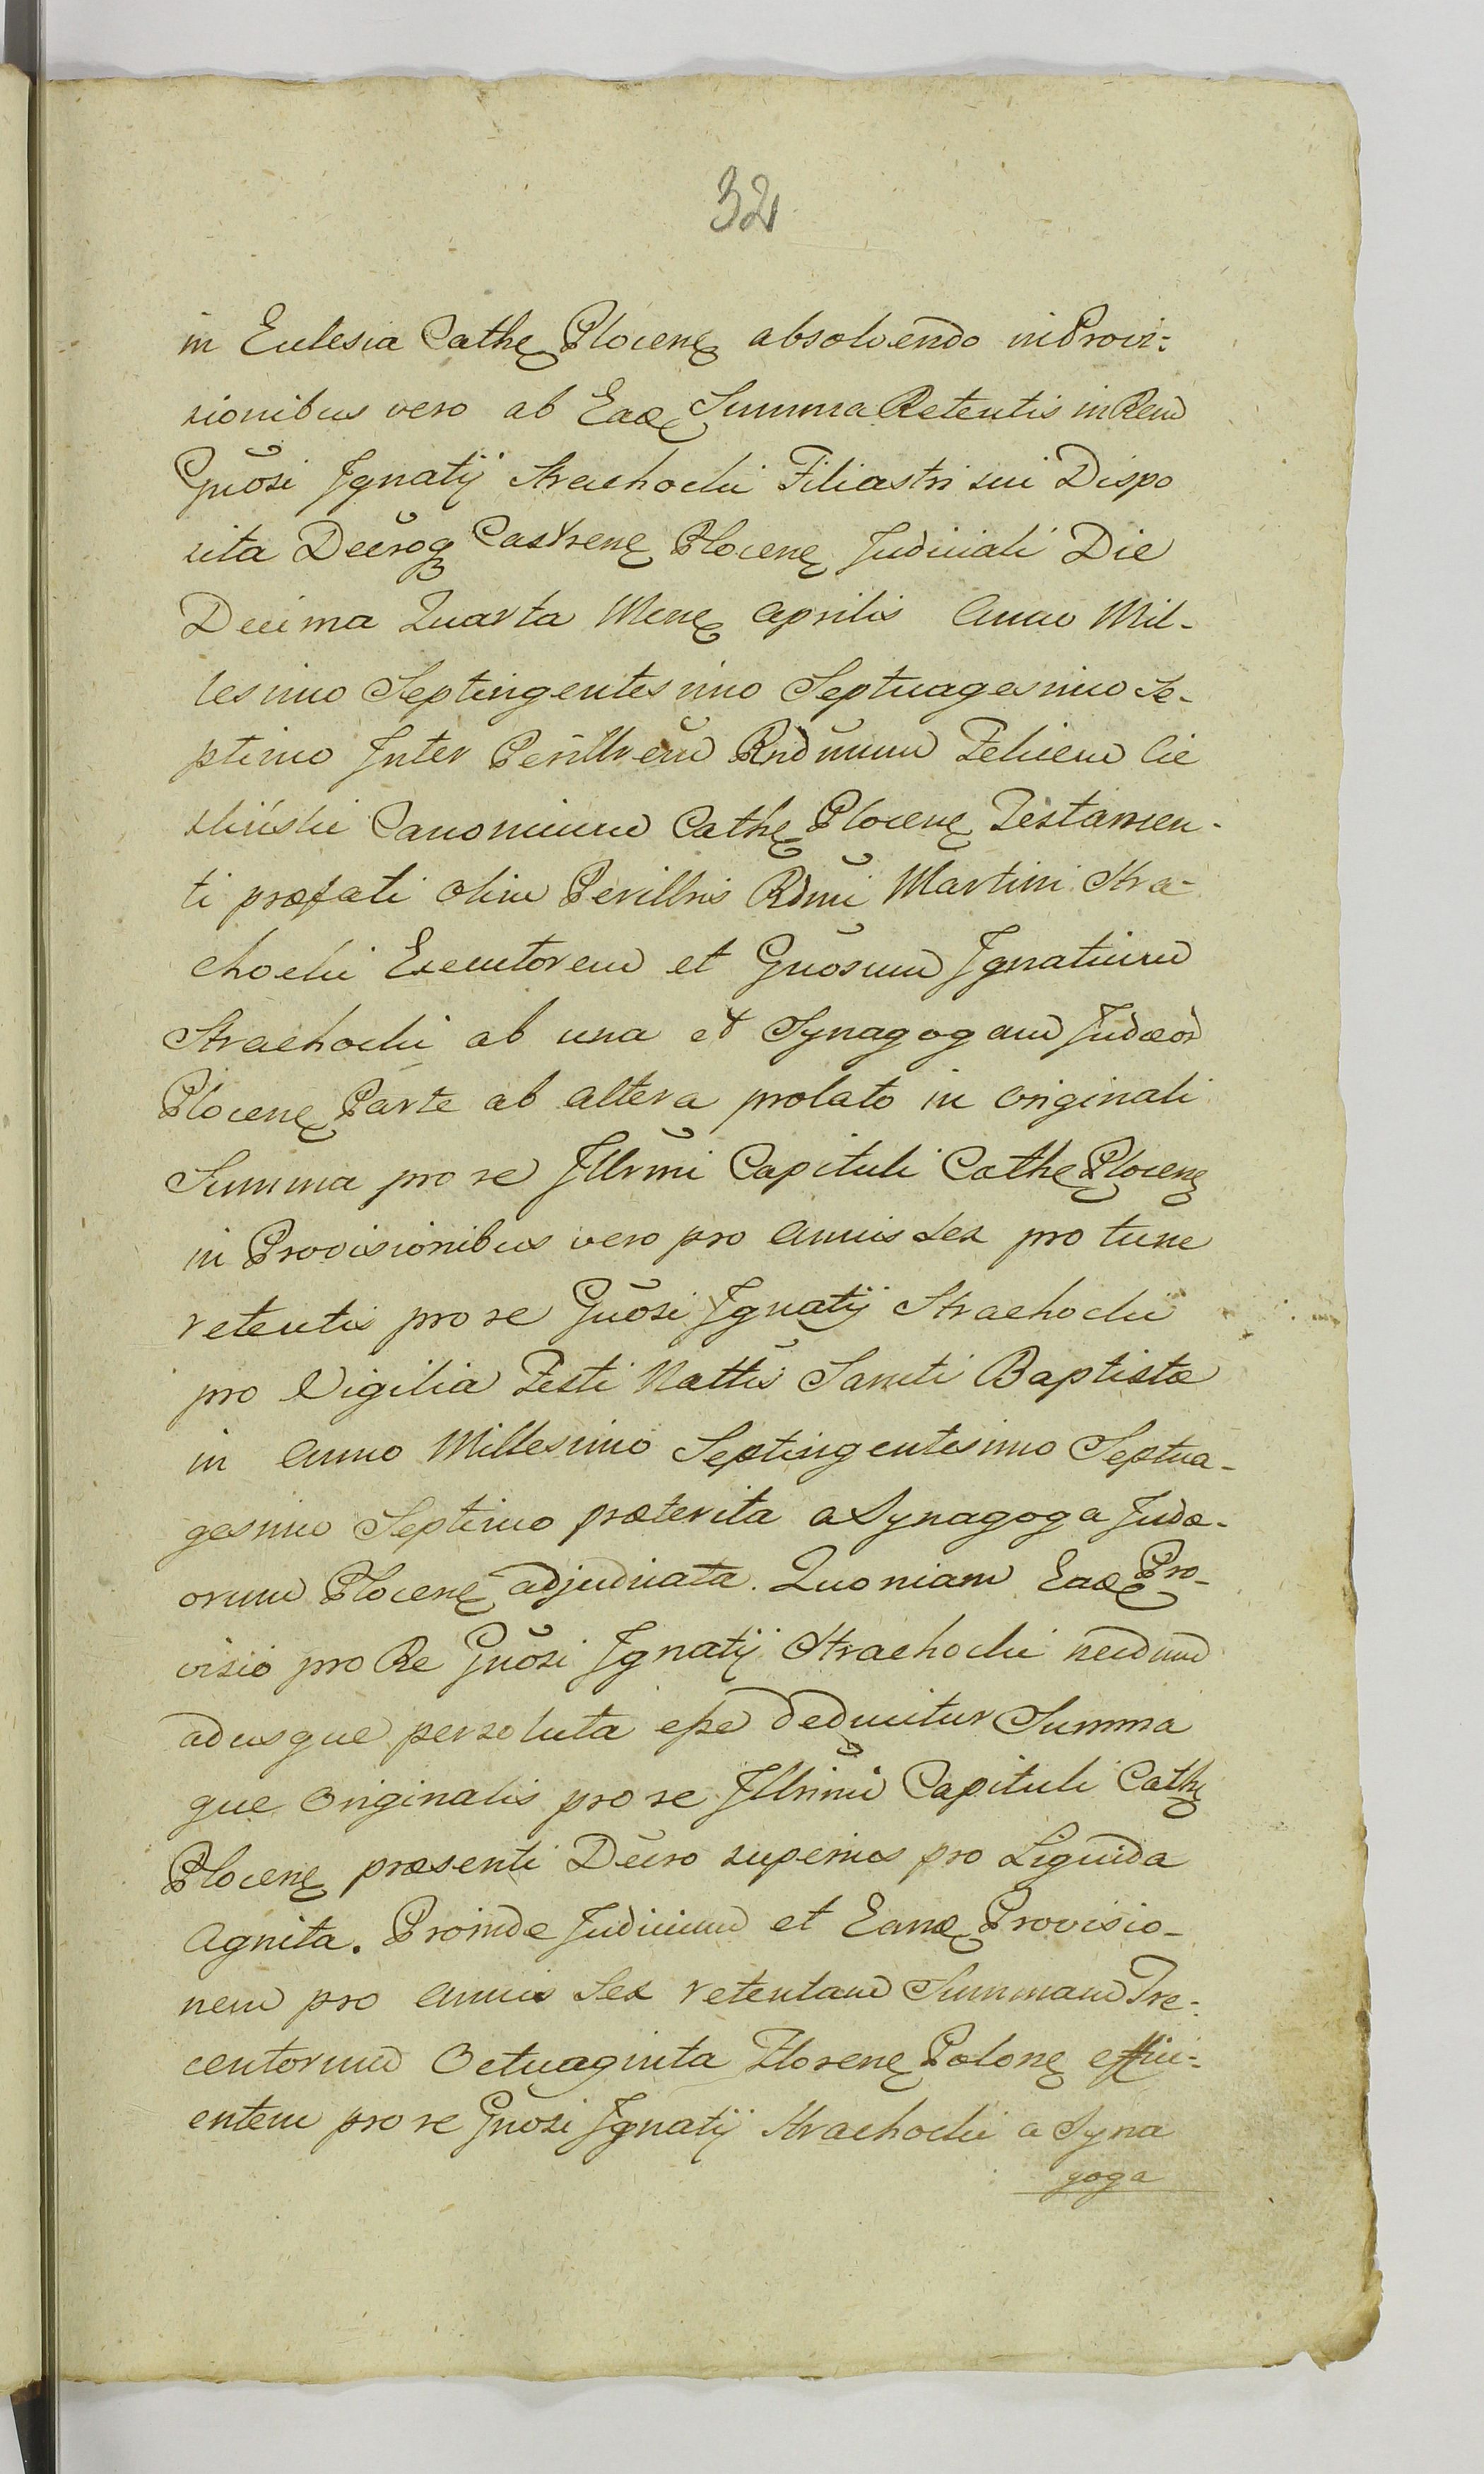 32
in Ecclesia Cathe Plocene absolvendo in Provi:
sionibus vero ab Eade Summa Retentis in Rem
Gnosi Ignatij Strachocki Filiastri sui Dispo
sita Decroq Castrene Plocene Judiciali Die
Decima Quarta Mene Aprilis Anno Mil-
lesimo Septingentesimo Septuagesimo Se-
ptimo Inter Perillrem Rndmum Felicem Cie
Canonicum Cathe Plocene Testamen-
ti præfati olim Perillris Rdmi Martini Stra-
chocki Executorem et Gnosum Ignatium
Strachocki ab una et Synagogam Judæor
Plocene Parte ab altera prolato in Originali
Summa pro re Illrmi Capituli Cathe Plocene
in Provisionibus vero pro Annis Sex pro tunc
retentis pro re Gnosi Ignatij Strachocki
pro Vigilia Festi Nattis Sancti Baptistæ
in Anno Millesimo Septingentesimo Septua-
gesimo Septimo præterita a Synagoga Judæ-
orum Plocene adjudicata. Quoniam Eade Pro-
visio pro Re Gnosi Ignatij Strachocki necdum
adusque persoluta esse deducitur Summa
que Originalis pro re Illrimi Capituli Cathe
Plocene præsenti Decro superius pro Liquida
Agnita. Proinde Judicium et Eande Provisio-
nem pro Annis Sex retentam Summam Tre-
centorum Octuaginta Florene Polone effici-
entem pro re Gnosi Ignatij Strachocki a Syna
goga